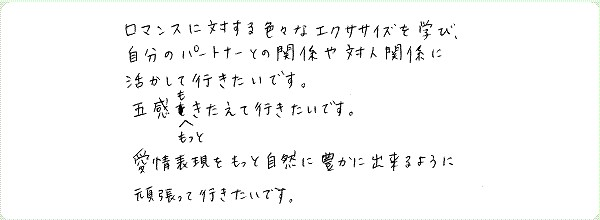 ロマンスに対する色々なエクササイズを学び、
自分のパートナーとの関係や対人関係に
活かして行きたいです。
五感もきたえて行きたいです。
もっと
愛情表現をもっと自然に豊かに出来るように
頑張って行きたいです。